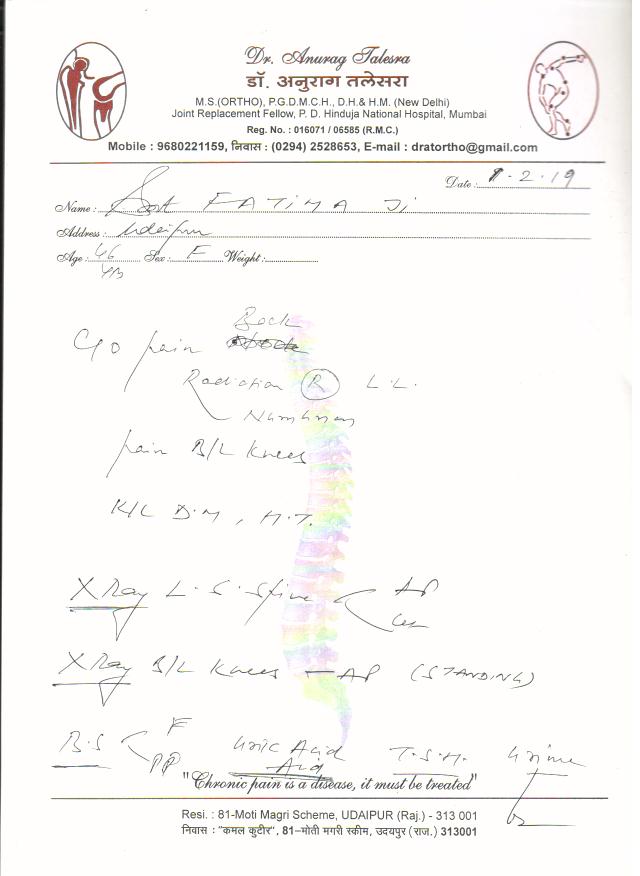 Dr. Anurag Talesra
डॉ. अनुराग तलेसरा
M.S.(ORTHO), P.G.D.M.C.H., D.H.& H.M. (New Delhi)
Joint Replacement Fellow, P. D. Hinduja National Hospital, Mumbai
Reg. No. : 016071 / 06585 (R.M.C.)
Mobile : 9680221159, निवास : (0294) 2528653, E-mail : dratortho@gmail.com
Date : 8.2.19
Name : Smt FATIMA Ji
Address : Udaipur
Age : 46 Yrs Sex : F Weight :
C/o pain Back
Radiation R L.L.
Numbness
pain B/L Knees
K/C D.M, H.T.
X Ray L.S. Spine AP
Lat
X Ray B/L Knees — AP (STANDING)
B.S F Uric Acid T.S.H. Urine
PP Acid
"Chronic pain is a disease, it must be treated"
Resi. : 81-Moti Magri Scheme, UDAIPUR (Raj.) - 313 001
निवास : "कमल कुटीर", 81–मोती मगरी स्कीम, उदयपुर (राज.) 313001